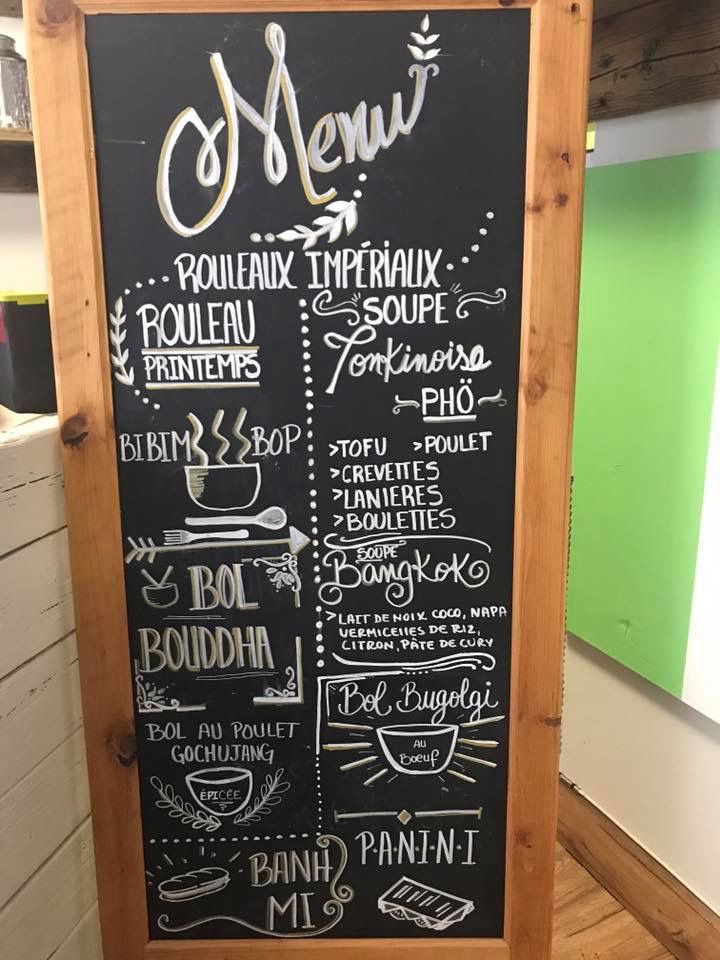 Menu
ROULEAUX IMPÉRIAUX
ROULEAU
PRINTEMPS
BIBIM BOP
BOL
BOUDDHA
BOL AU POULET
GOCHUJANG
ÉPICÉE
BANH
MI
SOUPE
Tonkinoise
PHÖ
>TOFU >POULET
>CREVETTES
>LANIERES
>BOULETTES
SOUPE
BANGKOK
>LAIT DE NOIX COCO, NAPA
VERMICELLES DE RIZ,
CITRON, PÂTE DE CURY
Bol Bugolgi
AU
Boeuf
P.A.N.I.N.I